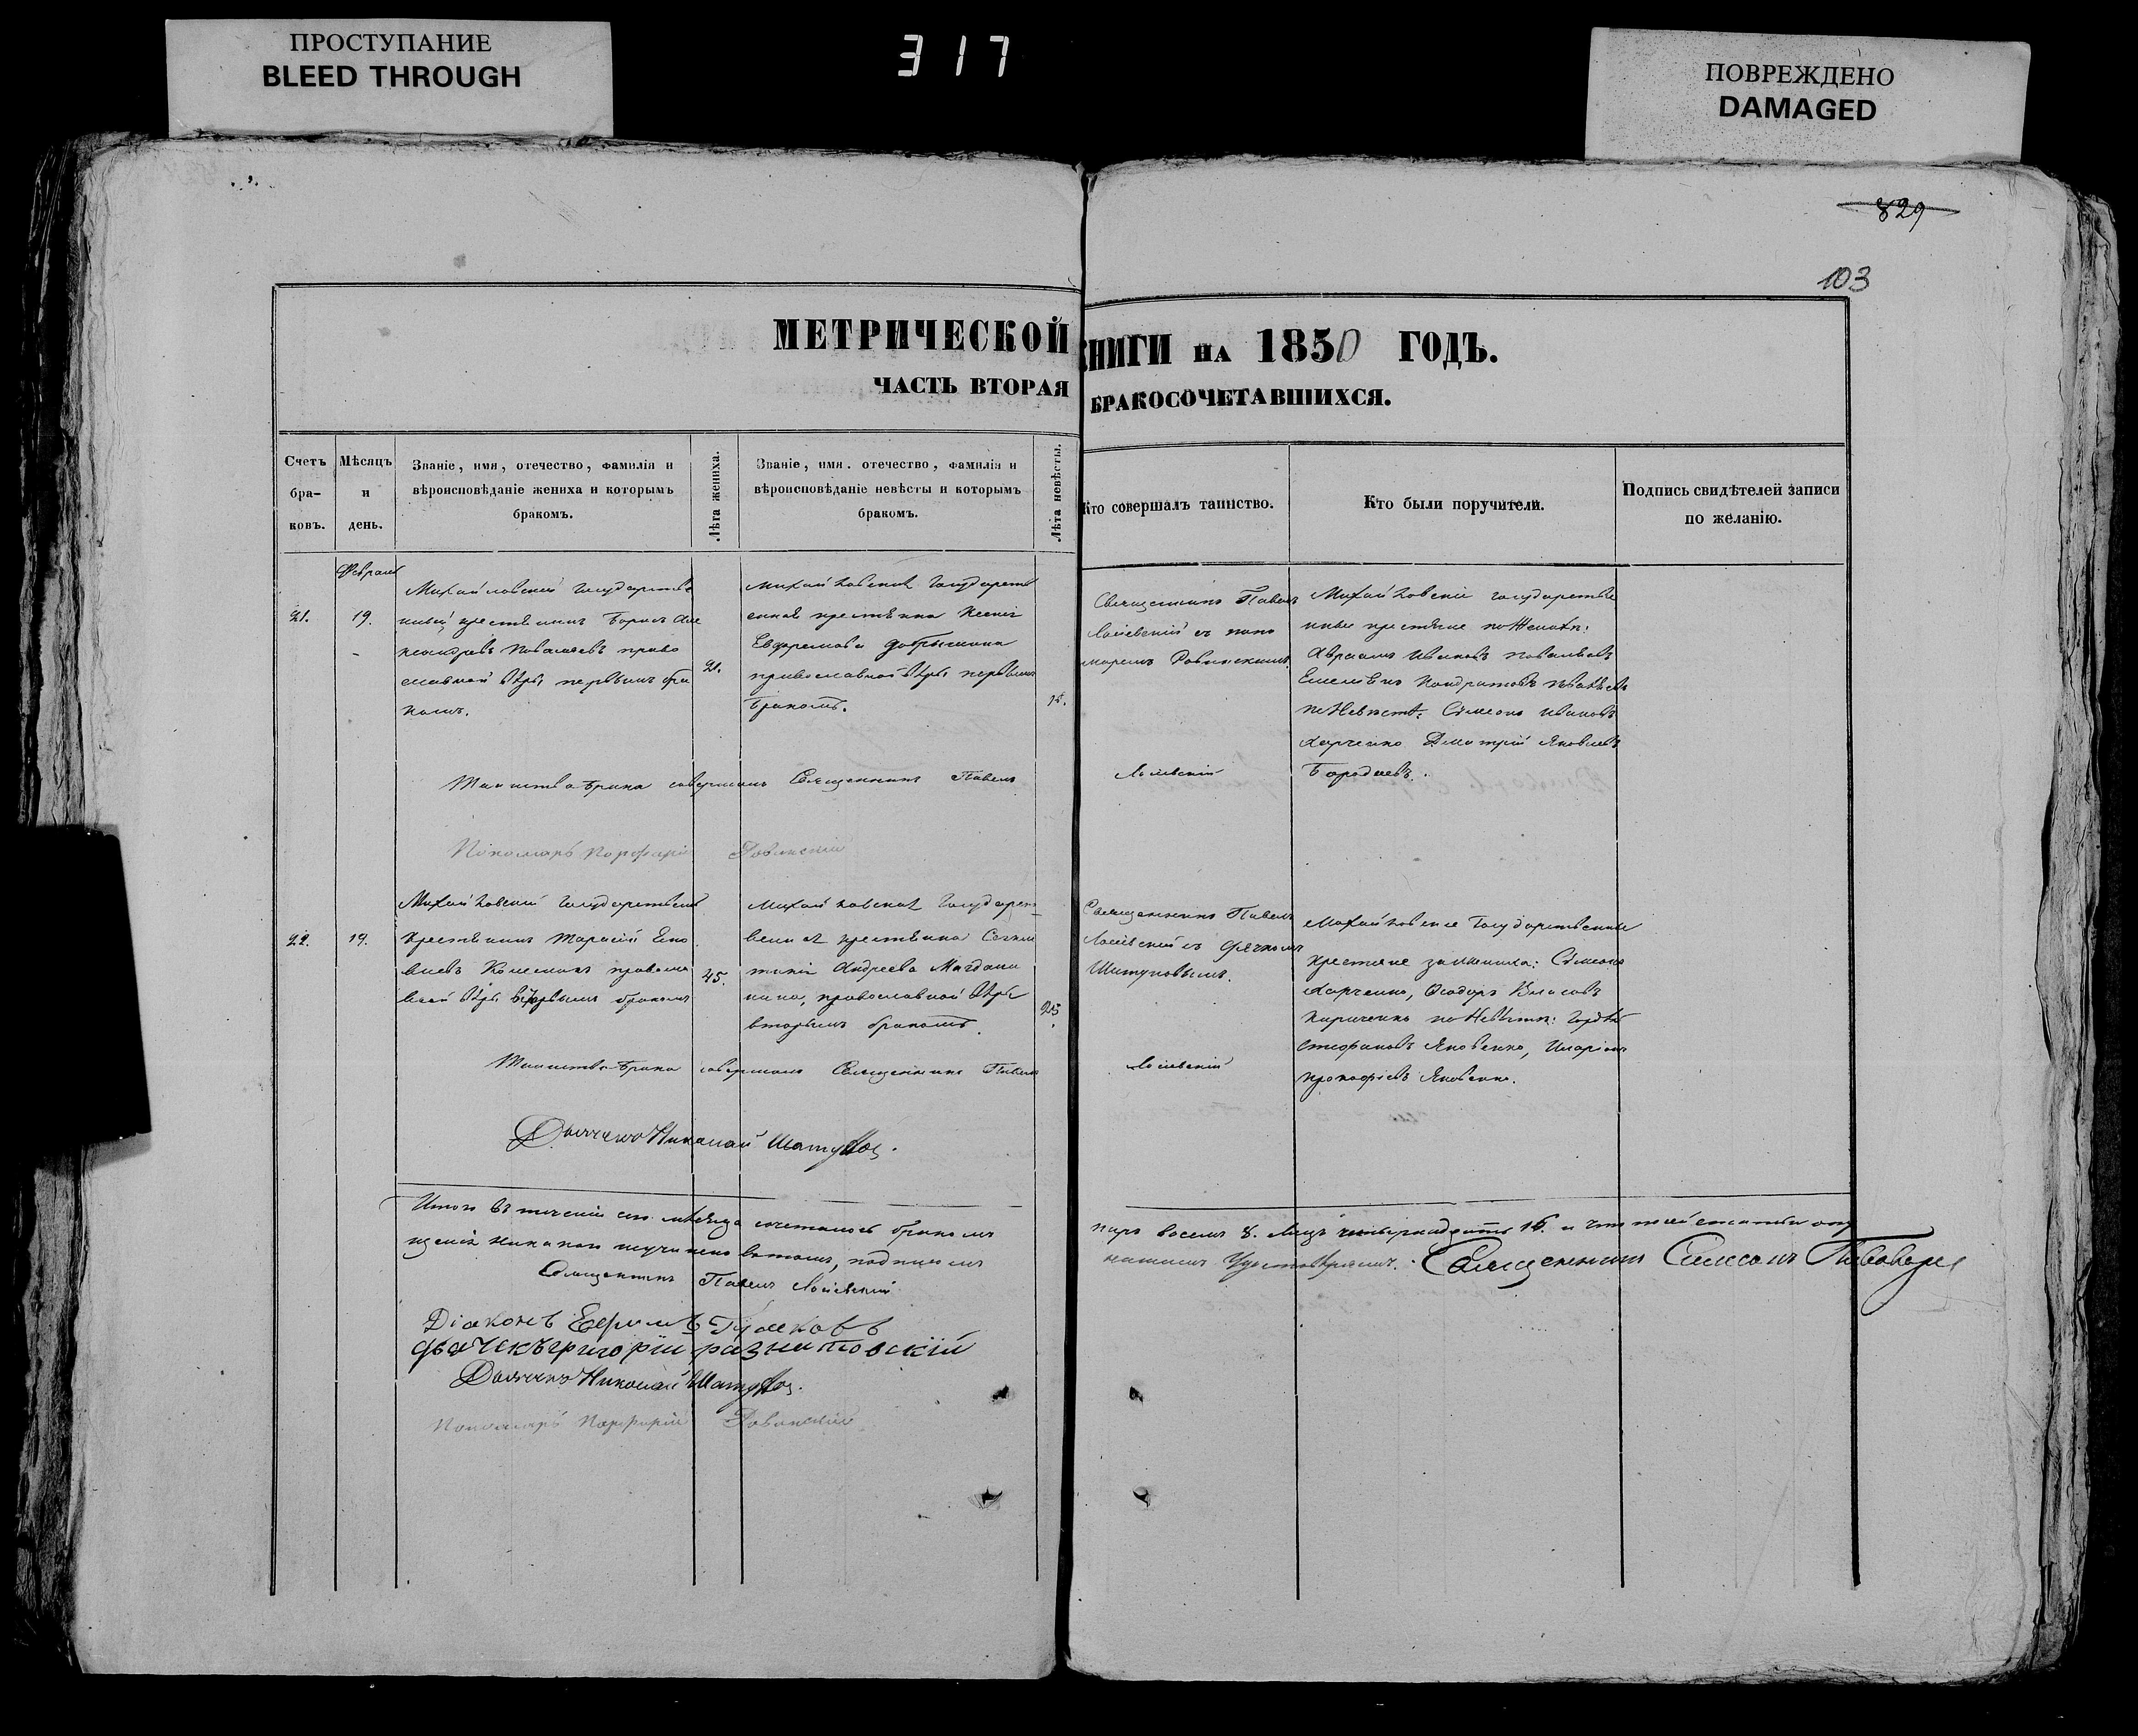 ПРОСТУПАНИЕ
BLEED THROUGH
317
ПОВРЕЖДЕНО
DAMAGED
829
103
МЕТРИЧЕСКОЙ КНИГИ НА 1850 ГОДЪ.
ЧАСТЬ ВТОРАЯ БРАКОСОЧЕТАВШИХСЯ.
Счетъ бра-ковъ.
Мѣсяцъ и день.
Званіе, имя, отечество, фамилія и
вѣроисповѣданіе жениха и которымъ
бракомъ.
Лѣта жениха.
Званіе, имя. отечество, фамилія и
вѣроисповѣданіе невѣсты и которымъ
бракомъ.
Лѣта невѣсты.
Кто совершалъ таинство.
Кто были поручители.
Подпись свидѣтелей записи
по желанію.
Февраль
21.
19.
Михайловскій государстве
нный крестьянинъ Борисъ Але
ксандровъ право
славной вѣры первымъ бра
комъ.
21.
Михайловская государств
енная крестьянка Ксенія
Евфремова Добрышкина
православной вѣры первымъ
бракомъ.
Священникъ Павелъ
Лосіевскій съ поно
маремъ Ровинскимъ.
Михайловскіе государстве
нные крестьяне по Женихѣ:
Авраамъ Ивановъ
Емеліянъ Кондратовъ
по Невѣстѣ: Сѵмеонъ Ивановъ
Харченко Дмитрій Яковлевъ
Бородаевъ.
Таинство брака совершалъ Священникъ Павелъ Лосіевскій
Пономарь Порфирій Ровинскій
22.
19.
Михайловскій государствен
крестьянинъ Тарасій
православ
ной вѣры вторымъ бракомъ
45.
Михайловская Государст
венная крестьянка
Андреева
православной вѣры
вторымъ бракомъ.
25.
Священникъ Павелъ
Лосіевскій съ дячкомъ
Шатуновымъ.
Михайловскіе Государственные
крестьяне за жениха: Сѵмеонъ
Харченко, Ѳеодоръ Власовъ
Кириченко по Невѣстѣ: Гордѣй
Стефановъ Яковенко, Иларіонъ
Прокофіевъ Яковенко.
Таинство брака совершалъ Священникъ Павелъ Лосіевскій
Дьячекъ Николай Шатуновъ.
Итого въ теченіи сего мѣсяца сочеталось бракомъ паръ восемь 8. лицъ 16. и что въ сей статьи опу
щенія никакого неучинено въ томъ, подписомъ нашимъ Удостовѣряемъ. Священникъ Самсонъ Пивоваровъ
Священникъ Павелъ Лосіевскій
Діаконъ Ефимъ
дьячекъ григорій
Дьячекъ Николай Шатуновъ.
Пономарь Порфирій Ровинскій